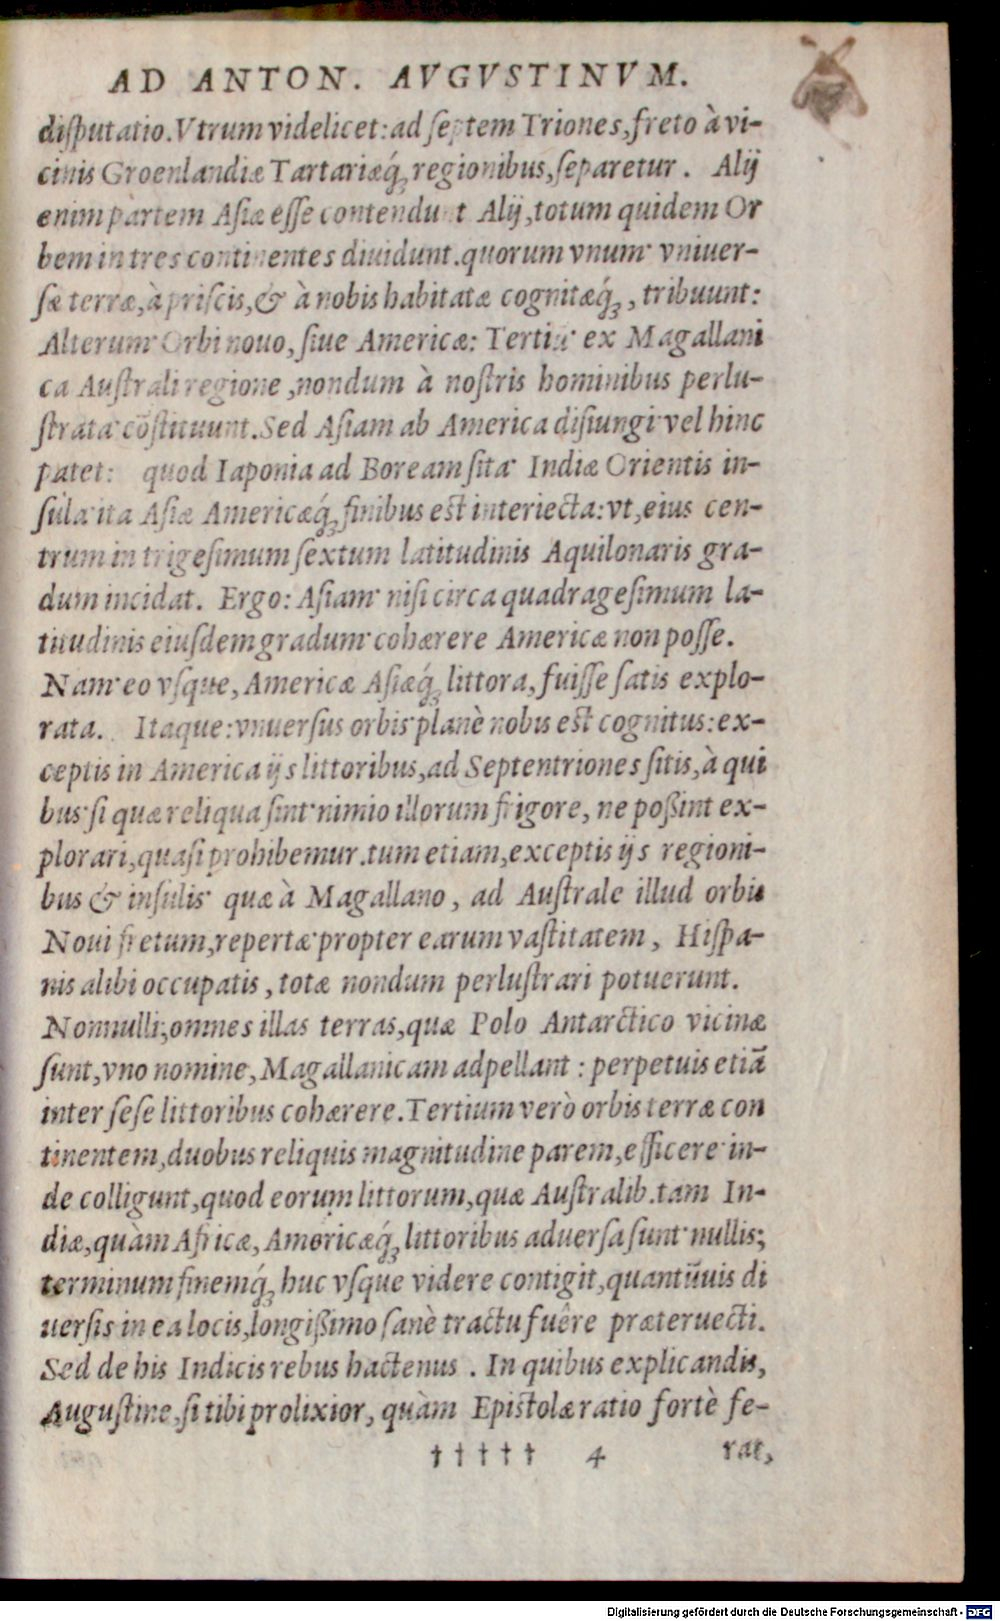 AD ANTON. AVGVSTINVM.
diſputatio. Vtrum videlicet: ad ſeptem Triones, freto à vi-
cinis Groenlandiæ Tartariæq́₃ regionibus, ſeparetur. Alij
enim partem Aſiæ eſſe contendunt Alij, totum quidem Or
bem in tres continentes diuidunt. quorum vnum vniuer-
ſæ terræ, à priſcis, & à nobis habitatæ cognitæq́₃, tribuunt:
Alterum Orbi nouo, ſiue Americæ: Tertiū ex Magallani
ca Auſtrali regione, nondum à noſtris hominibus perlu-
ſtrata cõſtituunt. Sed Aſiam ab America diſiungi vel hinc
patet: quod Iaponia ad Boream ſita Indiæ Orientis in-
ſula ita Aſiæ Americæq́₃ finibus est interiecta: vt, eius cen-
trum in trigeſimum ſextum latitudinis Aquilonaris gra-
dum incidat. Ergo: Aſiam niſi circa quadrageſimum la-
titudinis eiuſdem gradum cohærere Americæ non poſſe.
Nam eo vſque, Americæ Aſiæq́₃ littora, fuiſſe ſatis explo-
rata. Itaque: vniuerſus orbis planè nobis est cognitus: ex-
ceptis in America ijs littoribus, ad Septentriones ſitis, à qui
bus ſi quæ reliqua ſint nimio illorum frigore, ne poßint ex-
plorari, quaſi prohibemur. tum etiam, exceptis ijs regioni-
bus & inſulis quæ à Magallano, ad Auſtrale illud orbis
Noui fretum, repertæ propter earum vaſtitatem, Hiſpa-
nis alibi occupatis, totæ nondum perluſtrari potuerunt.
Nonnulli, omnes illas terras, quæ Polo Antarctico vicinæ
ſunt, vno nomine, Magallanicam adpellant: perpetuis etiã
inter ſeſe littoribus cohærere. Tertium verò orbis terræ con
tinentem, duobus reliquis magnitudine parem, efficere in-
de colligunt, quod eorum littorum, quæ Auſtralib. tam In-
diæ, quàm Africæ, Americæq́₃ littoribus aduerſa ſunt nullis;
terminum finemq́₃ huc vſque videre contigit, quantũuis di
uerſis in ea locis, longißimo ſanè tractu fuêre præteruecti.
Sed de his Indicis rebus hactenus. In quibus explicandis,
Auguſtine, ſi tibi prolixior, quàm Epistolæ ratio fortè fe-
† † † † † 4 rat,
Digitalisierung gefördert durch die Deutsche Forschungsgemeinschaft - DFG